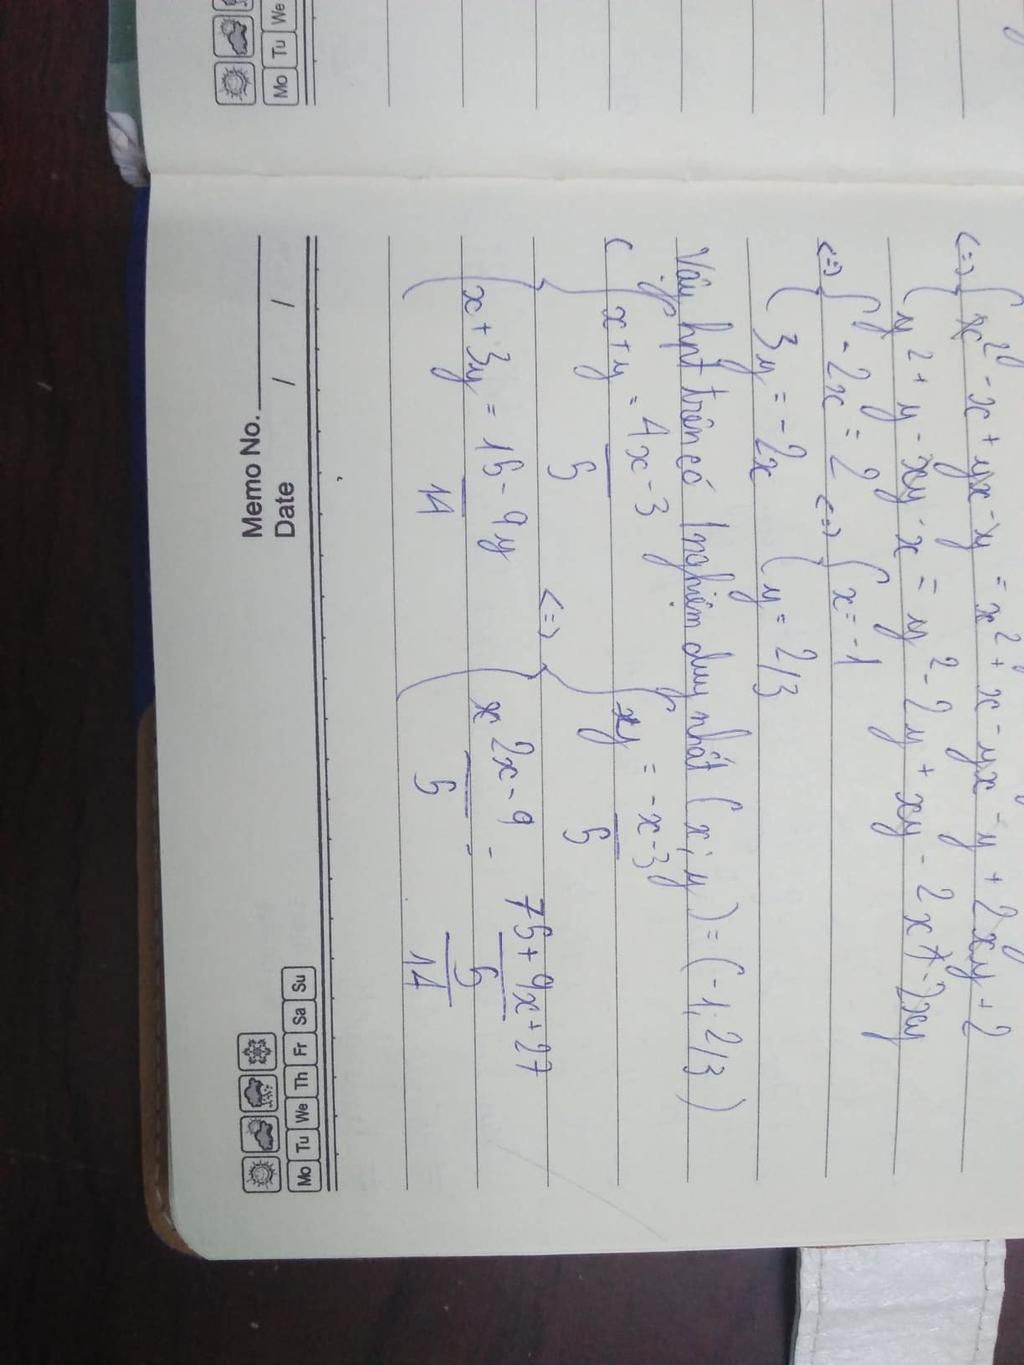 Mo Tu We
Memo No.
Date / /
Mo Tu We Th Fr Sa Su
<=> { x² - x + yx - y = x² + x - yx - y + 2xy + 2
y² + y - xy - x = y² - 2y + xy - 2x - 2xy
<=> { y - 2x = 2 <=> { x = -1
3y = -2x { y = 2/3
Vậy hpt trên có 1 nghiệm duy nhất (x; y) = (-1; 2/3)
c { x + y = 4x - 3 / 5 <=> { y = -x - 3 / 5
x + 3y = 15 - 9y / 14 { 2x - 9 / 5 = 75 + 9x + 27 / 5 / 14